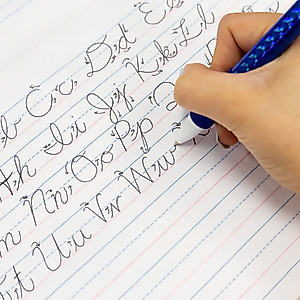 b Cc Dd E
Hh Ii Jj Kk Ll
m Nn Oo Pp
Tt Uu Vv Ww